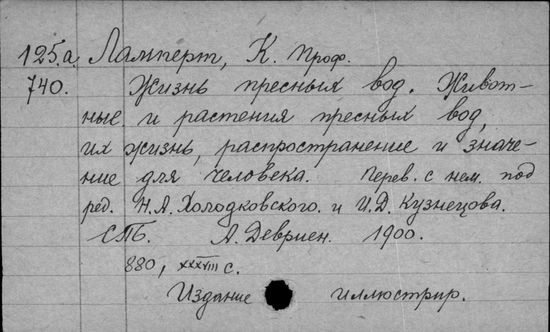 125.а Ламперт, К. Проф.
740. Жизнь пресных вод. Живот-
ные и растения пресных вод,
их жизнь, распространение и значе-
ние для человека. Перев. с нем. под
ред. Н.А. Холодковского. и И.Д. Кузнецова.
СПб. А. Девриен. 1900.
880, XXXVIII с.
Издание иллюстрир.